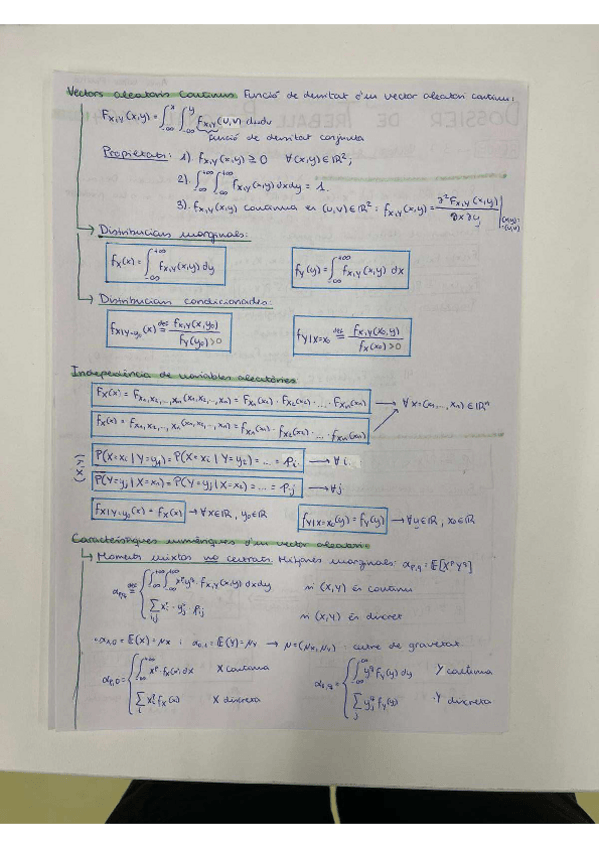 Vectors aleatoris continus. Funció de densitat d'un vector aleatori continu:
F_{X,Y}(x,y) = ∫_{-∞}^{x} ∫_{-∞}^{y} f_{X,Y}(u,v) dudv
funció de densitat conjunta
Propietats: 1). f_{X,Y}(x,y) ≥ 0 ∀(x,y)∈ℝ²;
2). ∫_{-∞}^{+∞} ∫_{-∞}^{+∞} f_{X,Y}(x,y) dxdy = 1.
3). f_{X,Y}(x,y) contínua en (u,v)∈ℝ²: f_{X,Y}(x,y) = ∂²F_{X,Y}(x,y) / ∂x∂y |_{(x,y)=(u,v)}
↳ Distribucions marginals:
f_X(x) = ∫_{-∞}^{+∞} f_{X,Y}(x,y) dy f_Y(y) = ∫_{-∞}^{+∞} f_{X,Y}(x,y) dx
↳ Distribucions condicionades:
f_{X|Y=y₀}(x) =^{def} f_{X,Y}(x,y₀) / f_Y(y₀)>0 f_{Y|X=x₀} =^{def} f_{X,Y}(x₀,y) / f_X(x₀)>0
Independència de variables aleatòries
F_X(x) = F_{X₁,X₂,...,Xₙ}(x₁,x₂,...,xₙ) = F_{X₁}(x₁) · F_{X₂}(x₂) · ... · F_{Xₙ}(xₙ) → ∀x=(x₁,...,xₙ)∈ℝⁿ
f_X(x) = f_{X₁,X₂,...,Xₙ}(x₁,x₂,...,xₙ) = f_{X₁}(x₁) · f_{X₂}(x₂) · ... · f_{Xₙ}(xₙ)
(X,Y)
P(X=xᵢ | Y=y₁) = P(X=xᵢ | Y=y₂) = ... = pᵢ. → ∀i.
P(Y=yⱼ | X=x₁) = P(Y=yⱼ | X=x₂) = ... = p.ⱼ → ∀j
f_{X|Y=y₀}(x) = f_X(x) → ∀x∈ℝ, y₀∈ℝ f_{Y|X=x₀}(y) = f_Y(y) → ∀y∈ℝ, x₀∈ℝ
Característiques numèriques d'un vector aleatori
↳ Moments mixtos no centrats. Mitjanes marginals: α_{p,q} = E[X^p Y^q]
α_{p,q} =^{def} { ∫_{-∞}^{+∞} ∫_{-∞}^{+∞} x^p y^q · f_{X,Y}(x,y) dxdy si (X,Y) és continu
∑_{i,j} xᵢ^p · yⱼ^q · pᵢⱼ si (X,Y) és discret
· α_{1,0} = E(X) = μ_X ; α_{0,1} = E(Y) = μ_Y → μ = (μ_X, μ_Y) · centre de gravetat.
α_{p,0} = { ∫_{-∞}^{+∞} x^p · f_X(x) dx X contínua
∑_i xᵢ^p f_X(xᵢ) X discreta
{ ∫_{-∞}^{∞} y^q f_Y(y) dy Y contínua
∑_j yⱼ^q f_Y(y) Y discreta